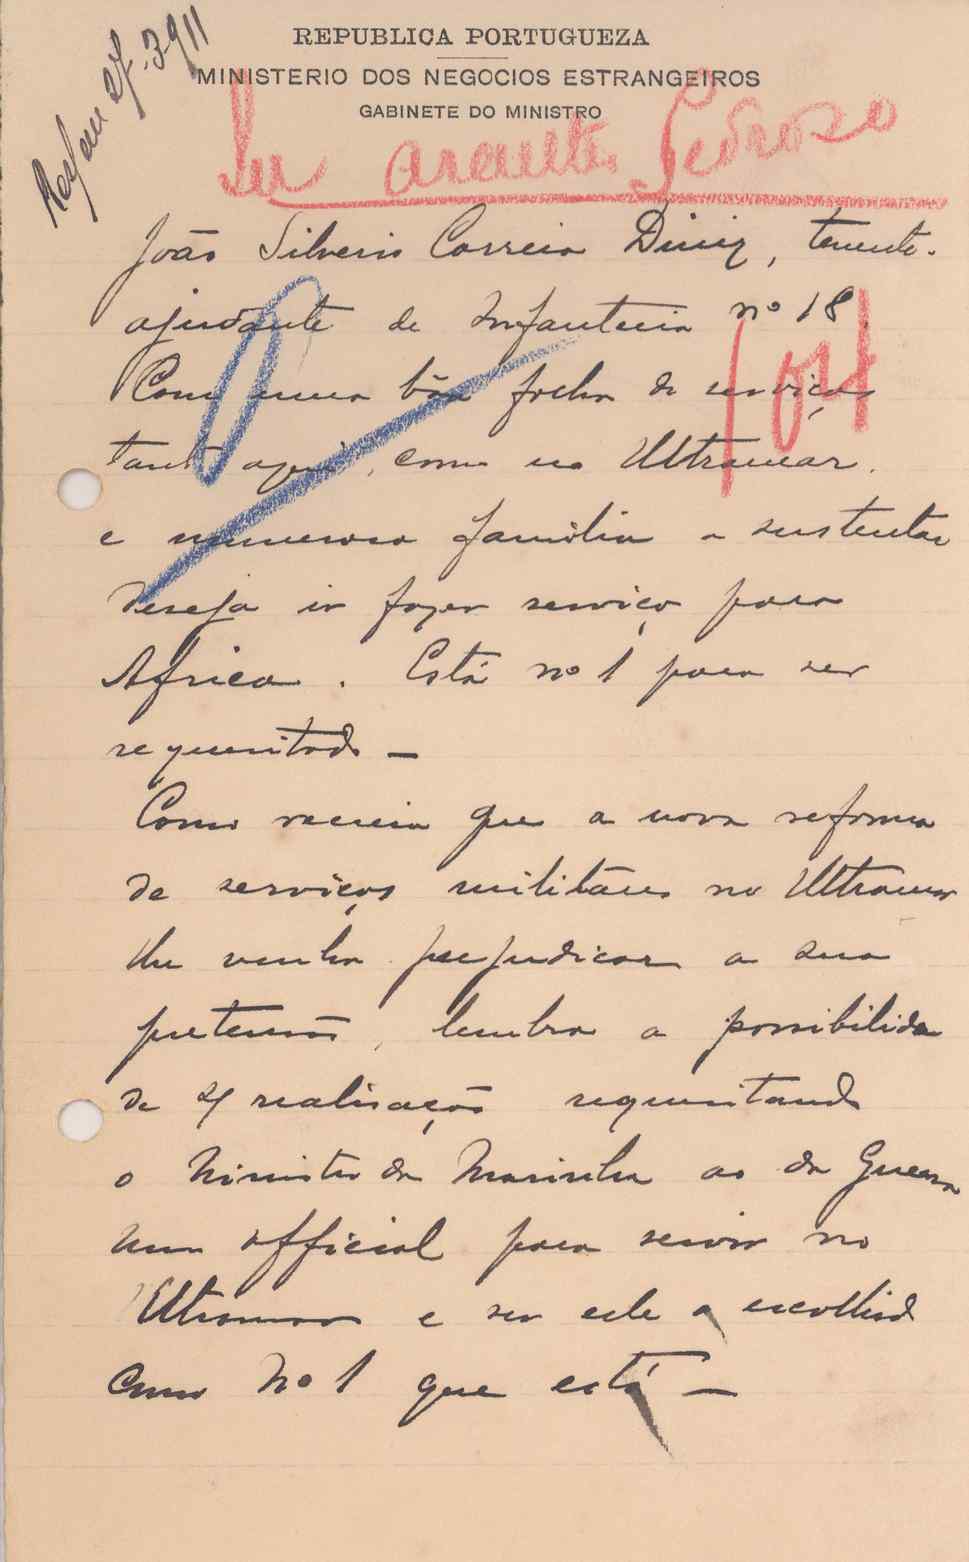 REPUBLICA PORTUGUEZA
MINISTERIO DOS NEGOCIOS ESTRANGEIROS
GABINETE DO MINISTRO
27-3-911
Pedroso
João Silverio Correia Diniz, tenente-
ajudante de Infanteria nº 18.
Com uma bôa folha de serviços
tanto aqui, como no Ultramar.
e numerosa familia a sustentar
deseja ir fazer serviço para
Africa. Está nº 1 para ser
requisitado —
Como receia que a nova reforma
de serviços militares no Ultramar
lhe venha prejudicar a sua
pretensão, lembra a possibilida
de realisação requisitando
o Ministro da Marinha ao da Guerra
um official para servir no
Ultramar e ser este o escolhido
como Nº 1 que está —